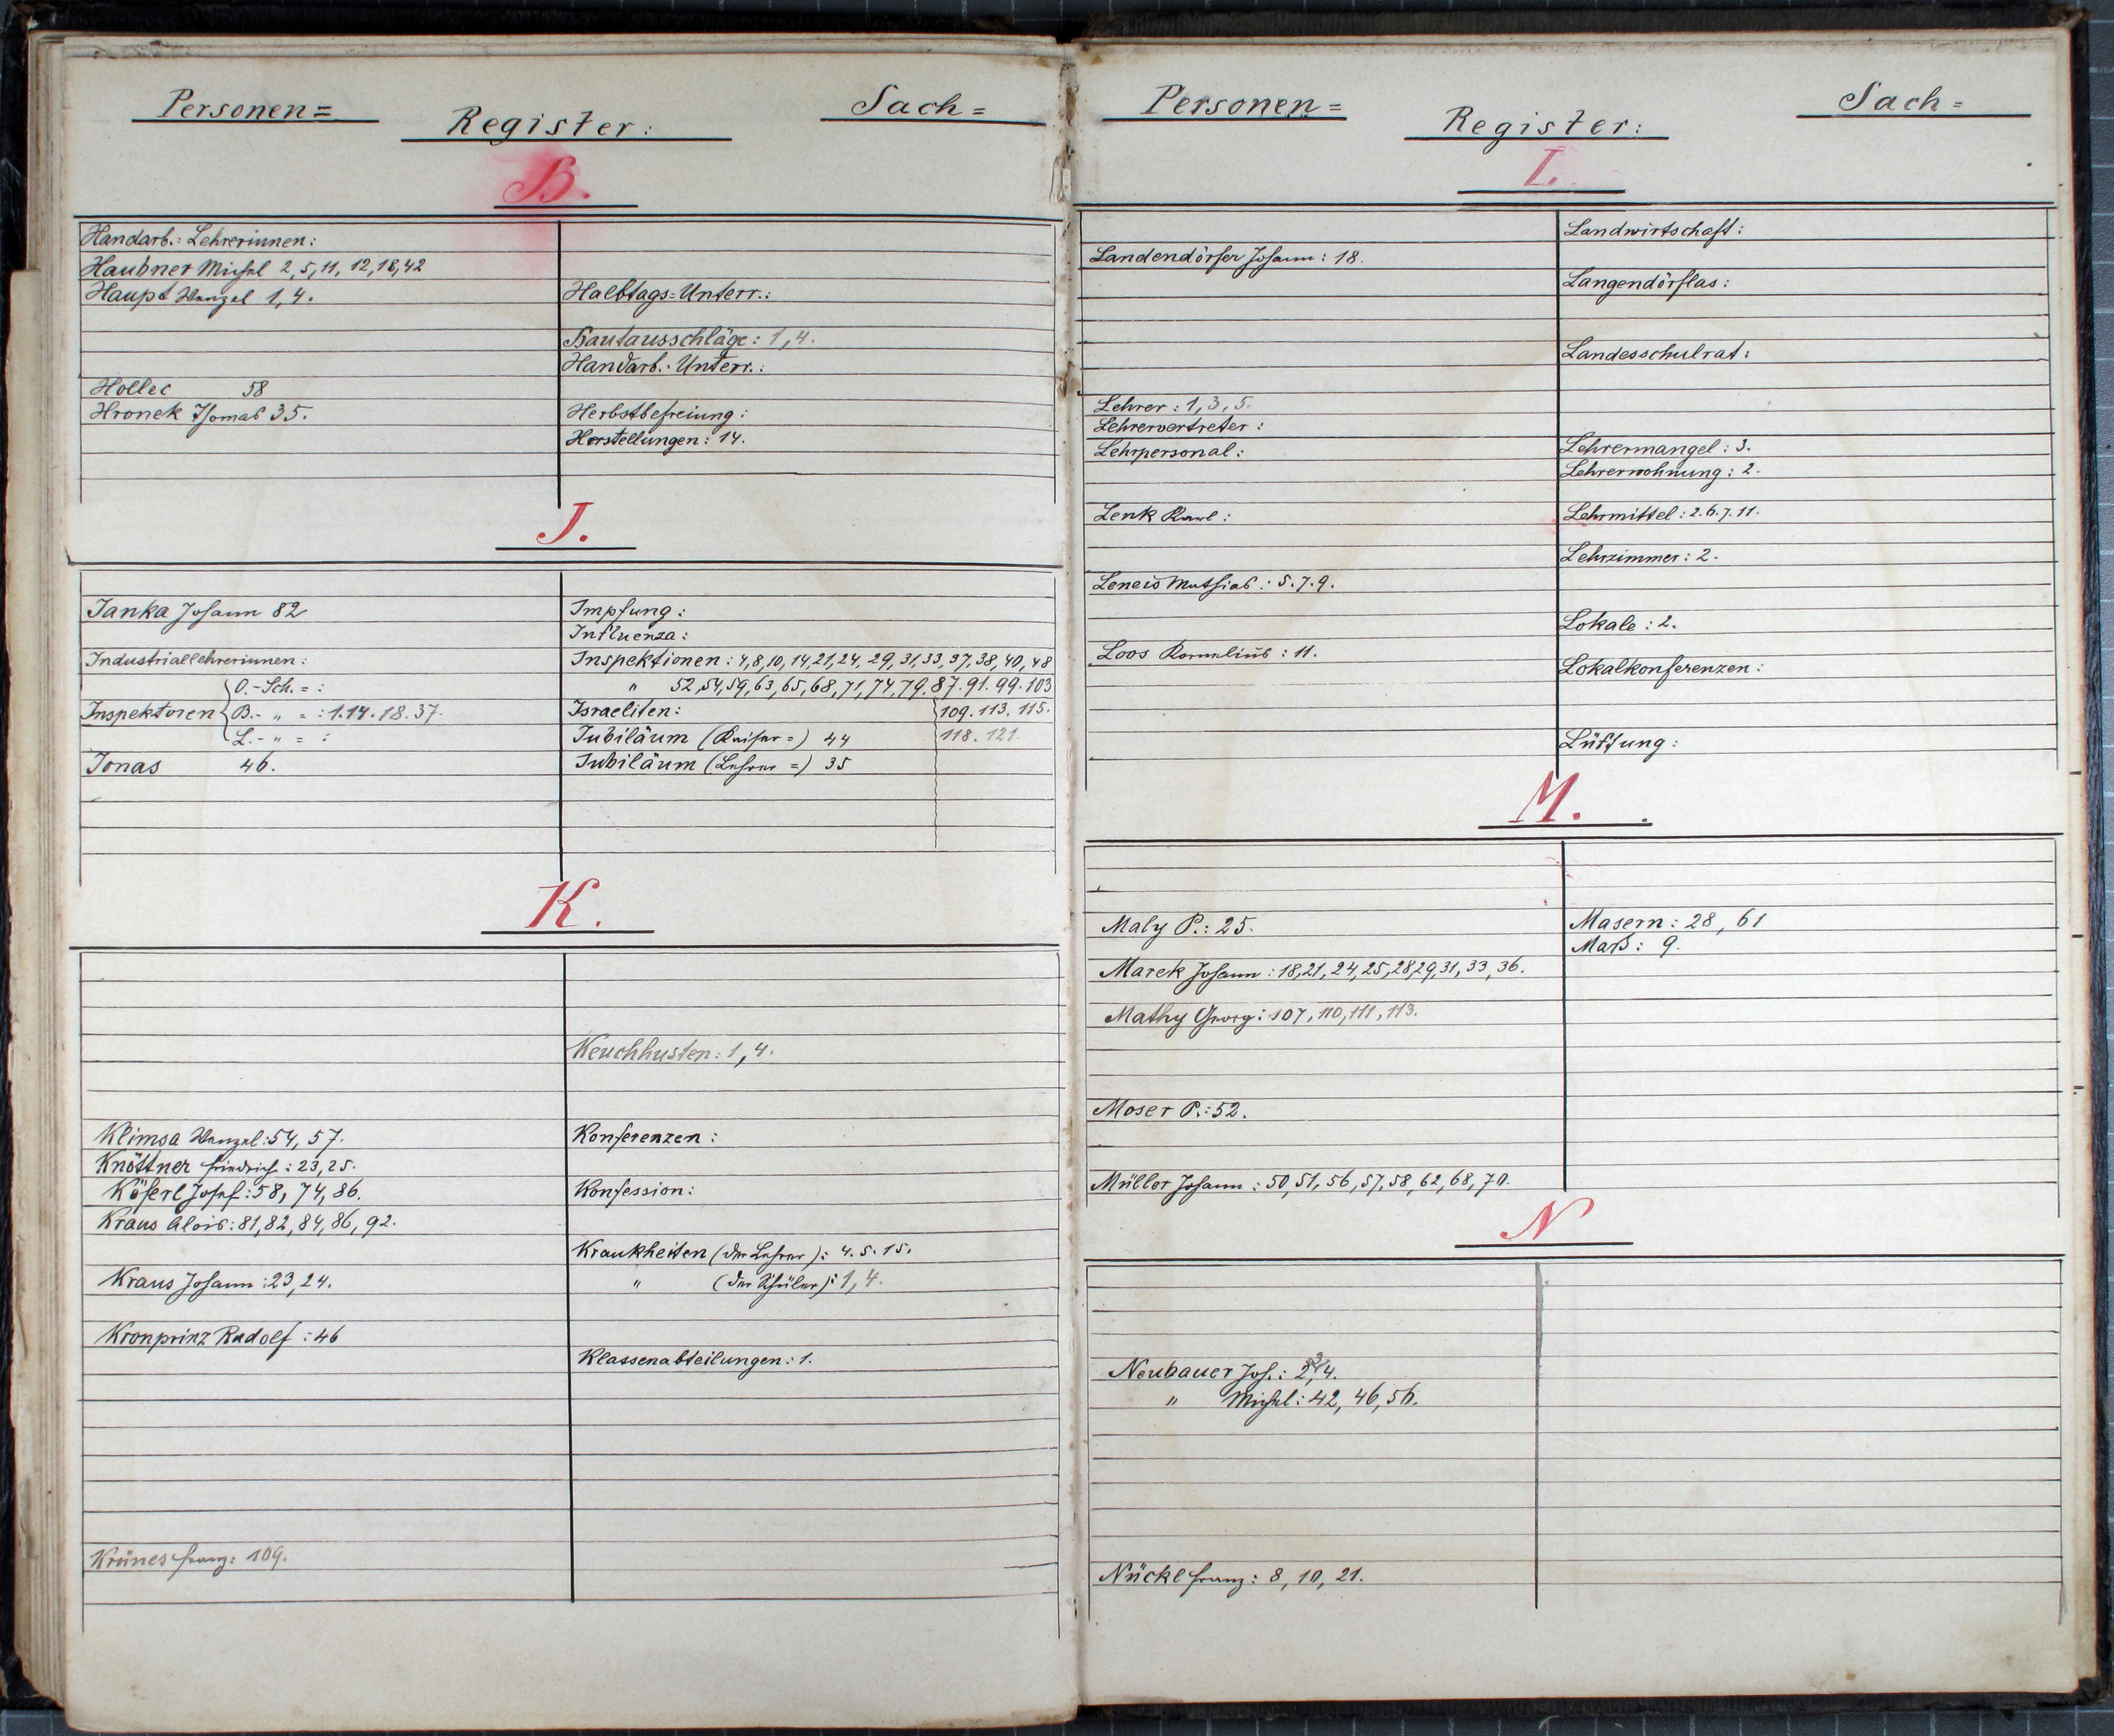 Personen= Register: Sach=
B.
Handarb.: Lehrerinnen:
Haubner Michal 2, 5, 11, 12, 18, 42
Haupt Wenzel 1, 4.
Hollec 58
Hronek Thomas 35.
Halbtags=Unterr.:
Hautausschläge: 1, 4.
Handarb.-Unterr.:
Herbstbefreiung:
Herstellungen: 14.
J.
Janka Johann 82
Industriallehrerinnen:
O.-Sch. = :
Inspektoren B.- " = : 1.14.18.37.
L.- " = :
Jonas 46.
Impfung:
Influenza:
Inspektionen: 4, 8, 10, 14, 21, 24, 29, 31, 33, 37, 38, 40, 48
" 52, 54, 59, 63, 65, 68, 71, 74, 79, 87. 91. 99. 103
Israeliten: 109. 113. 115.
Jubiläum (Kaiser=) 44 118. 121.
Jubiläum (Lehrer=) 35
K.
Klimsa Wenzel: 54, 57.
Knöttner Friedrich: 23, 25.
Köferl Josef: 58, 74, 86.
Kraus Alois: 81, 82, 84, 86, 92.
Kraus Johann: 23, 24.
Kronprinz Rudolf: 46
Krünes Franz: 109.
Keuchhusten: 1, 4.
Konferenzen:
Konfession:
Krankheiten (der Lehrer): 4. 5. 15.
" (der Schüler): 1, 4.
Klassenabteilungen: 1.
Personen= Register: Sach=
L.
Landendörfer Johann: 18.
Lehrer: 1, 3, 5.
Lehrervertreter:
Lehrpersonal:
Lenk Karl:
Leneis Mathias: 5. 7. 9.
Loos Kornelius: 11.
Landwirtschaft:
Langendörflas:
Landesschulrat:
Lehrermangel: 3.
Lehrerwohnung: 2.
Lehrmittel: 2. 6. 7. 11.
Lehrzimmer: 2.
Lokale: 2.
Lokalkonferenzen:
Lüftung:
M.
Maly P.: 25.
Marek Johann: 18, 21, 24, 25, 28, 29, 31, 33, 36.
Mathy Georg: 107, 110, 111, 113.
Moser P.: 52.
Müller Johann: 50, 51, 56, 57, 58, 62, 68, 70.
Masern: 28, 61
Maß: 9.
N
Neubauer Joh.: 2, 4.
" Michl: 42, 46, 56.
Nückl Franz: 8, 10, 21.